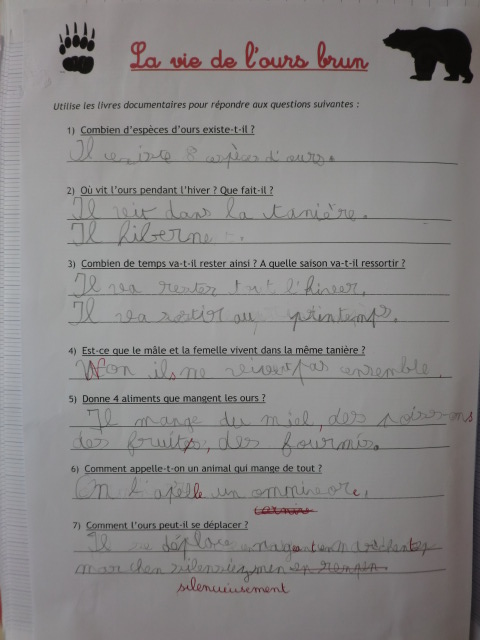 La vie de l'ours brun
Utilise les livres documentaires pour répondre aux questions suivantes :
1) Combien d'espèces d'ours existe-t-il ?
Il existe 8 espèces d'ours.
2) Où vit l'ours pendant l'hiver ? Que fait-il ?
Il vit dans la tanière.
Il hiberne.
3) Combien de temps va-t-il rester ainsi ? A quelle saison va-t-il ressortir ?
Il va rester tout l'hiver.
Il va sortir au printemps.
4) Est-ce que le mâle et la femelle vivent dans la même tanière ?
Non ils ne vivent pas ensemble.
5) Donne 4 aliments que mangent les ours ?
Il mange du miel, des poissons
des fruits, des fourmis.
6) Comment appelle-t-on un animal qui mange de tout ?
On l'apelle un omnivore.
7) Comment l'ours peut-il se déplacer ?
Il se déplace en nageant en
silencieusement